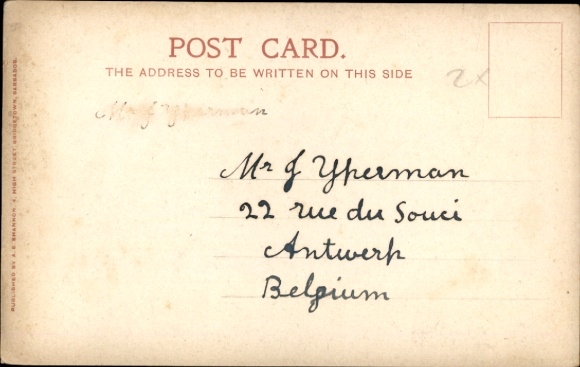 POST CARD.
THE ADDRESS TO BE WRITTEN ON THIS SIDE
2x
Mr J Yperman
Mr J Yperman
22 rue du Souci
Antwerp
Belgium
PUBLISHED BY A. E. SHANNON, 4, HIGH STREET, BRIDGETOWN, BARBADOS.